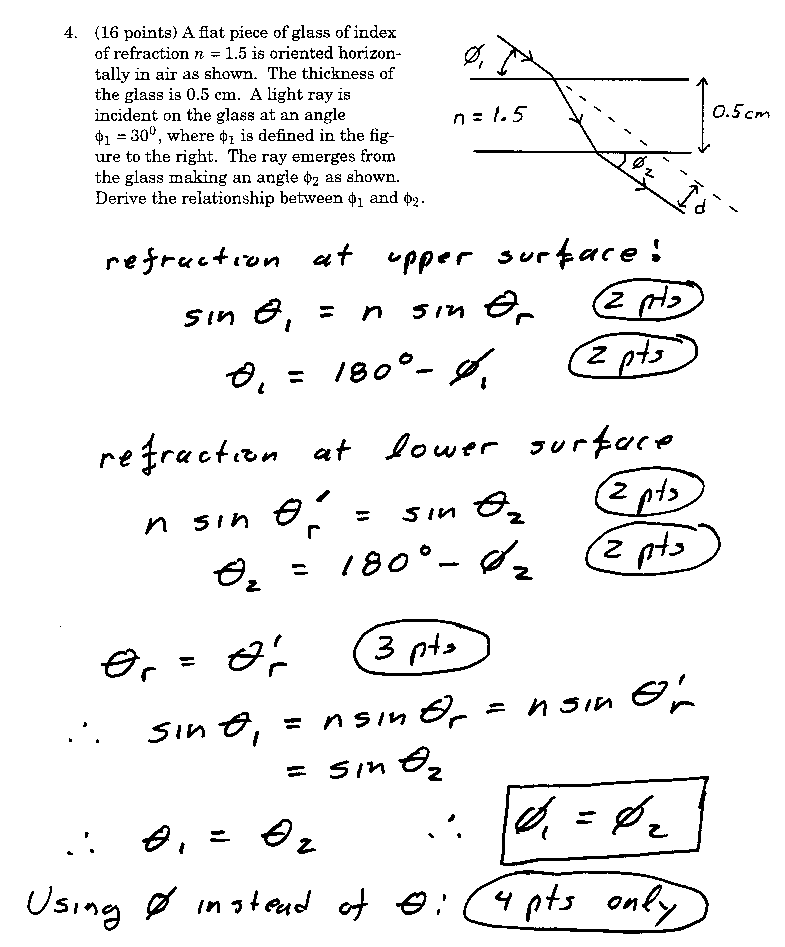 4. (16 points) A flat piece of glass of index
of refraction n = 1.5 is oriented horizon-
tally in air as shown. The thickness of
the glass is 0.5 cm. A light ray is
incident on the glass at an angle
ϕ₁ = 30⁰, where ϕ₁ is defined in the fig-
ure to the right. The ray emerges from
the glass making an angle ϕ₂ as shown.
Derive the relationship between ϕ₁ and ϕ₂.
ø₁
n = 1.5
0.5cm
ø₂
d
refraction at upper surface:
sin θ₁ = n sin θr 2 pts
θ₁ = 180° - ø₁ 2 pts
refraction at lower surface
n sin θr' = sin θ₂ 2 pts
θ₂ = 180° - ø₂ 2 pts
θr = θr' 3 pts
∴ sin θ₁ = n sin θr = n sin θr'
= sin θ₂
∴ θ₁ = θ₂ ∴ ø₁ = ø₂
Using ø instead of θ: 4 pts only